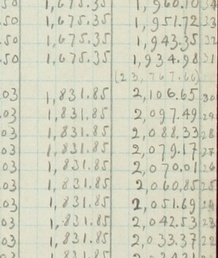 50 1,675.35 1,960.10 34
50 1,675.35 1,951.72 33
50 1,675.35 1,943.35 32
50 1,675.35 1,934.98 31
(23,767.60)
03 1,831.85 2,106.65 30
03 1,831.85 2,097.49 29
03 1,831.85 2,088.33 28
03 1,831.85 2,079.17 27
03 1,831.85 2,070.01 26
03 1,831.85 2,060.85 25
03 1,831.85 2,051.69 24
03 1,831.85 2,042.53 23
03 1,831.85 2,033.37 22